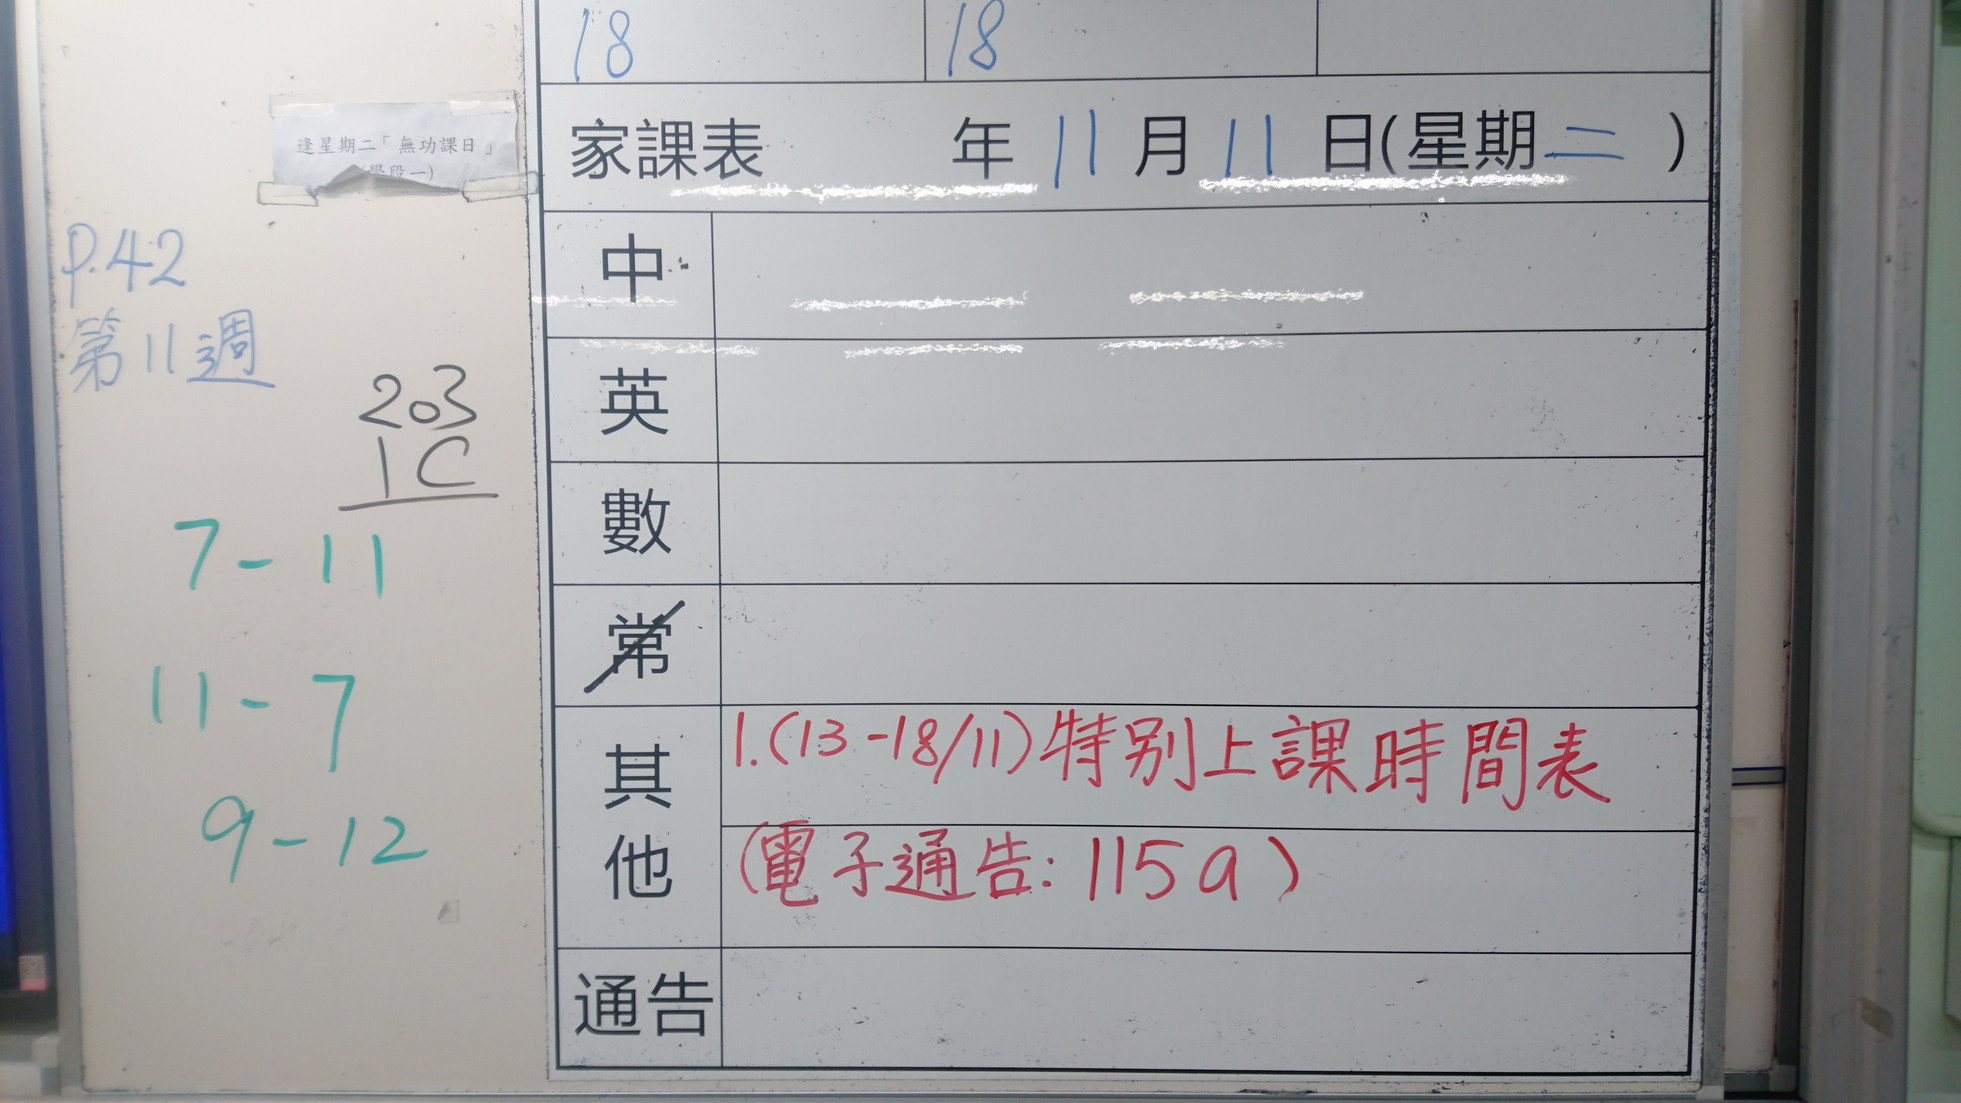 18 18
家課表 年 11 月 11 日(星期二)
逢星期二「無功課日」
學段一)
中
英
數
常
其他
1.(13-18/11)特別上課時間表
(電子通告:115a)
通告
P.42
第11週
203
1C
7-11
11-7
9-12